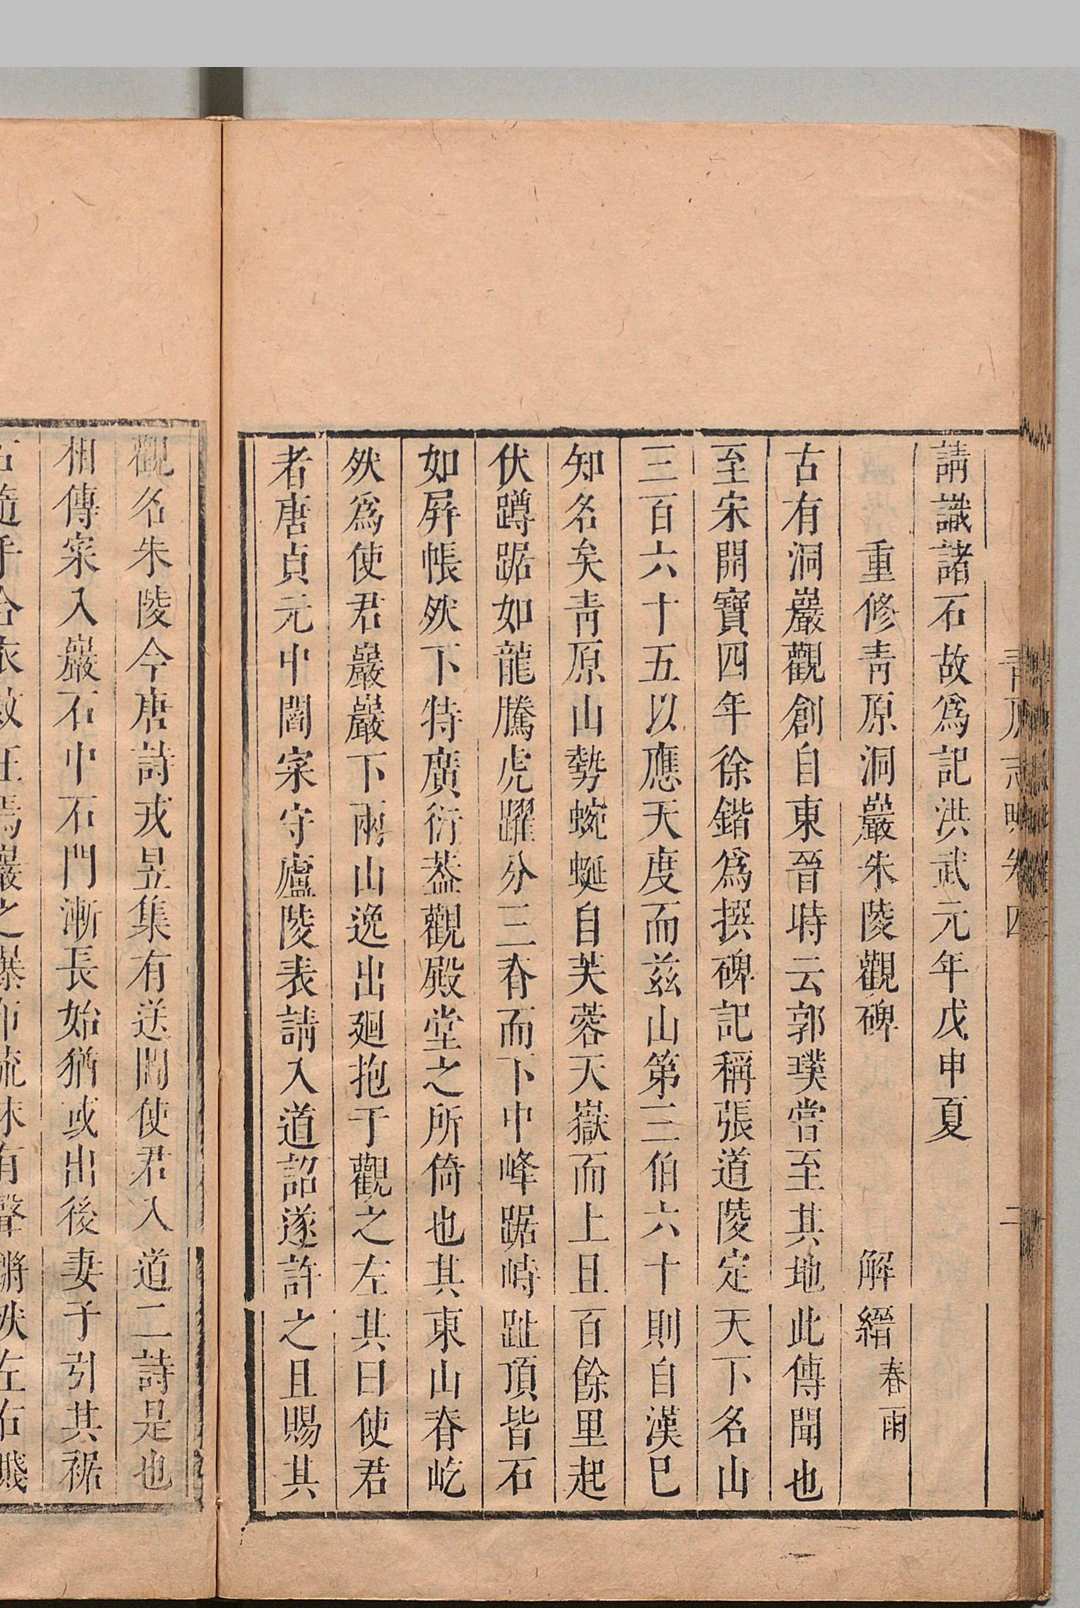 請識諸石故爲記洪武元年戊申夏
重修靑原洞巖朱陵觀碑　解縉春雨
古有洞巖觀創自東晉時云郭璞嘗至其地此傳聞也
至宋開寶四年徐鍇爲撰碑記稱張道陵定天下名山
三百六十五以應天度而茲山第三伯六十則自漢巳
知名矣靑原山勢蜿蜒自芙蓉天嶽而上且百餘里起
伏蹲踞如龍騰虎躍分三脊而下中峰踞峙趾頂皆石
如屛帳然下特廣衍葢觀殿堂之所倚也其東山脊屹
然爲使君巖巖下兩山逸出廻抱于觀之左其曰使君
者唐貞元中閻寀守廬陵表請入道詔遂許之且賜其
觀名朱陵今唐詩戎昱集有送閻使君入道二詩是也
相傳寀入巖石中石門漸長始猶或出後妻子引其裾
石隨手合衣
靑原志畧卷四
二